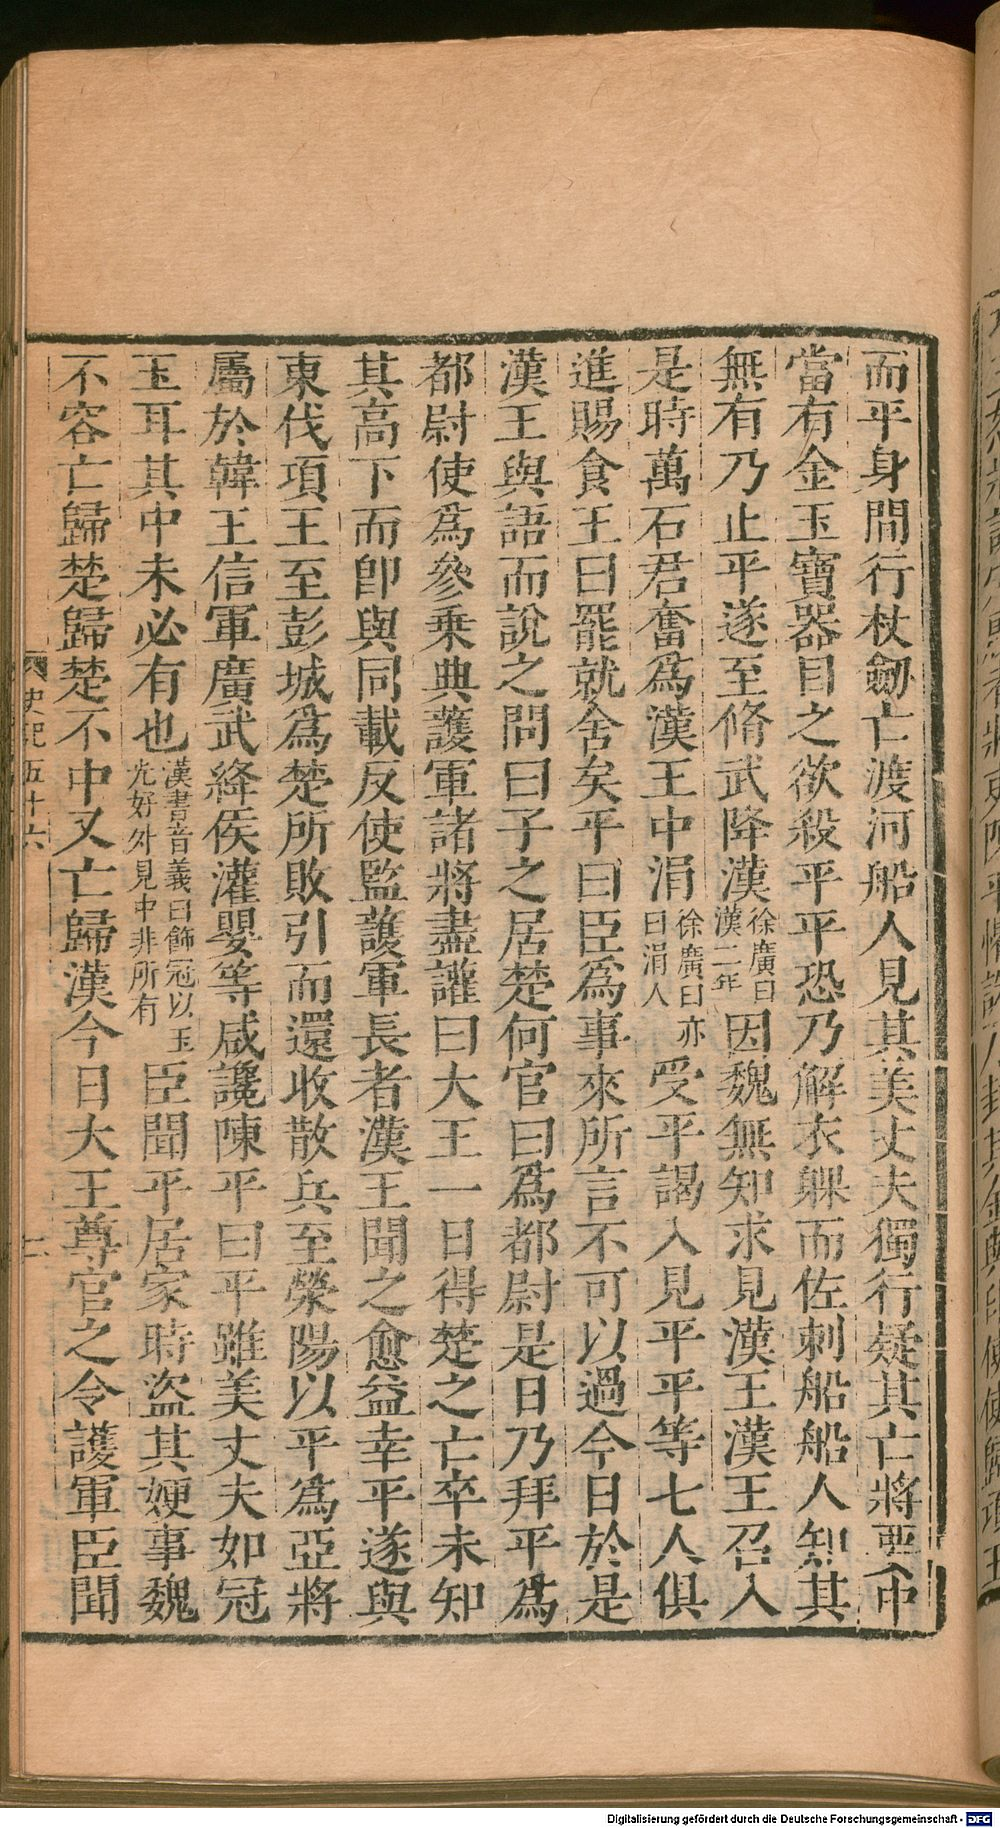 而平身間行杖劒亡渡河船人見其美丈夫獨行疑其亡將要中
當有金玉寶器目之欲殺平平恐乃解衣躶而佐刺船船人知其
無有乃止平遂至脩武降漢徐廣曰漢二年因魏無知求見漢王漢王召入
是時萬石君奮爲漢王中涓徐廣曰亦曰涓人受平謁入見平平等七人俱
進賜食王曰罷就舍矣平曰臣爲事來所言不可以過今日於是
漢王與語而說之問曰子之居楚何官曰爲都尉是日乃拜平爲
都尉使爲參乗典護軍諸將盡讙曰大王一日得楚之亡卒未知
其高下而卽與同載反使監護軍長者漢王聞之愈益幸平遂與
東伐項王至彭城爲楚所敗引而還收散兵至滎陽以平爲亞將
屬於韓王信軍廣武絳侯灌嬰等咸讒陳平曰平雖美丈夫如冠
玉耳其中未必有也漢書音義曰飾冠以玉光好外見中非所有臣聞平居家時盜其嫂事魏
不容亡歸楚歸楚不中又亡歸漢今日大王尊官之令護軍臣聞
史記五十六
Digitalisierung gefördert durch die Deutsche Forschungsgemeinschaft - DFG